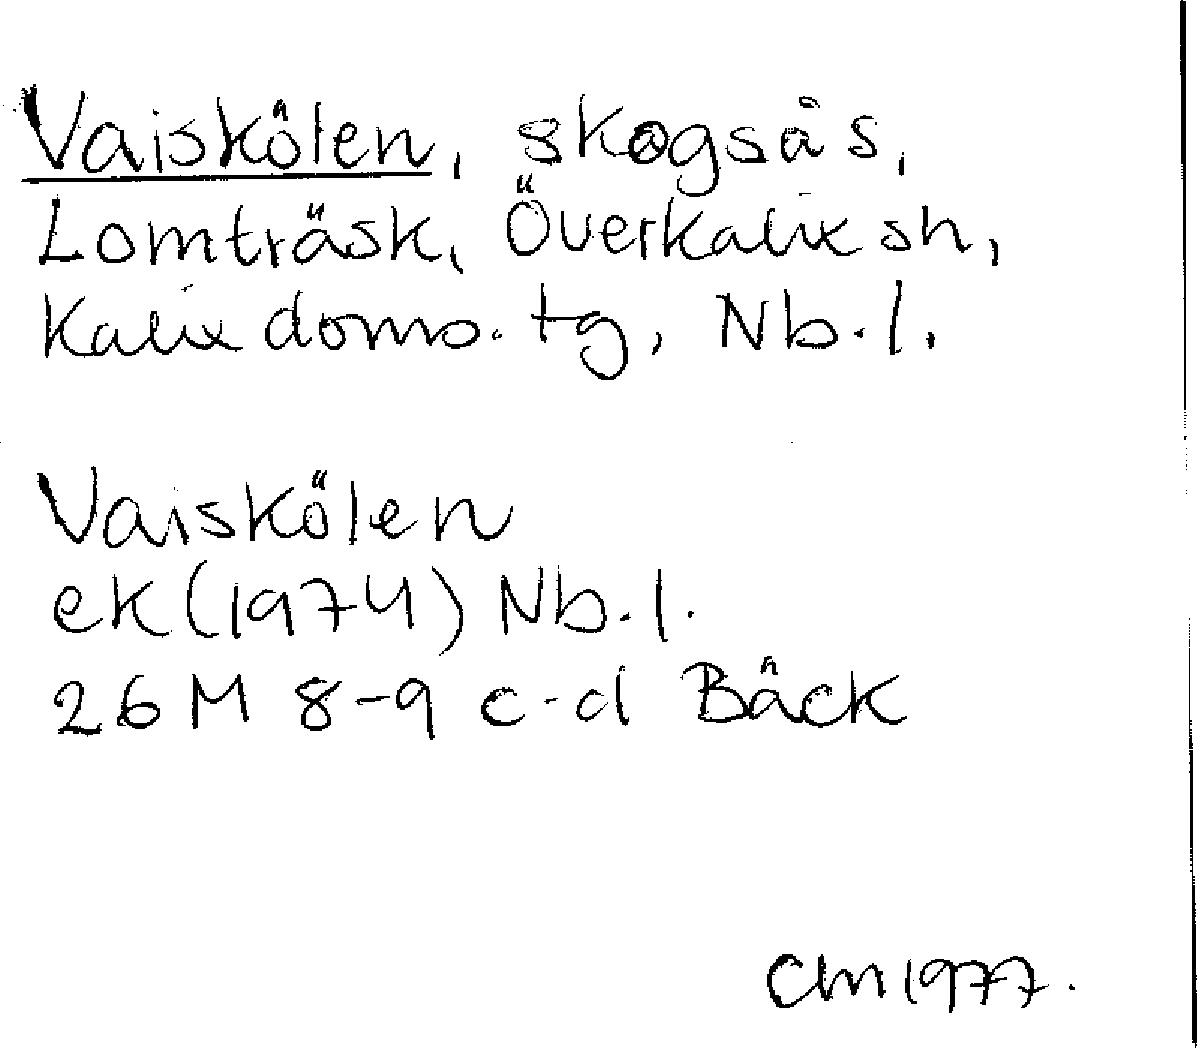 Vaiskölen, skogsås,
Lomträsk, Överkalix sn,
Kalix doms. tg, Nb.l.
Vaiskölen
ek (1974) Nb.l.
26 M 8-9 c-d Bäck
CM 1977.